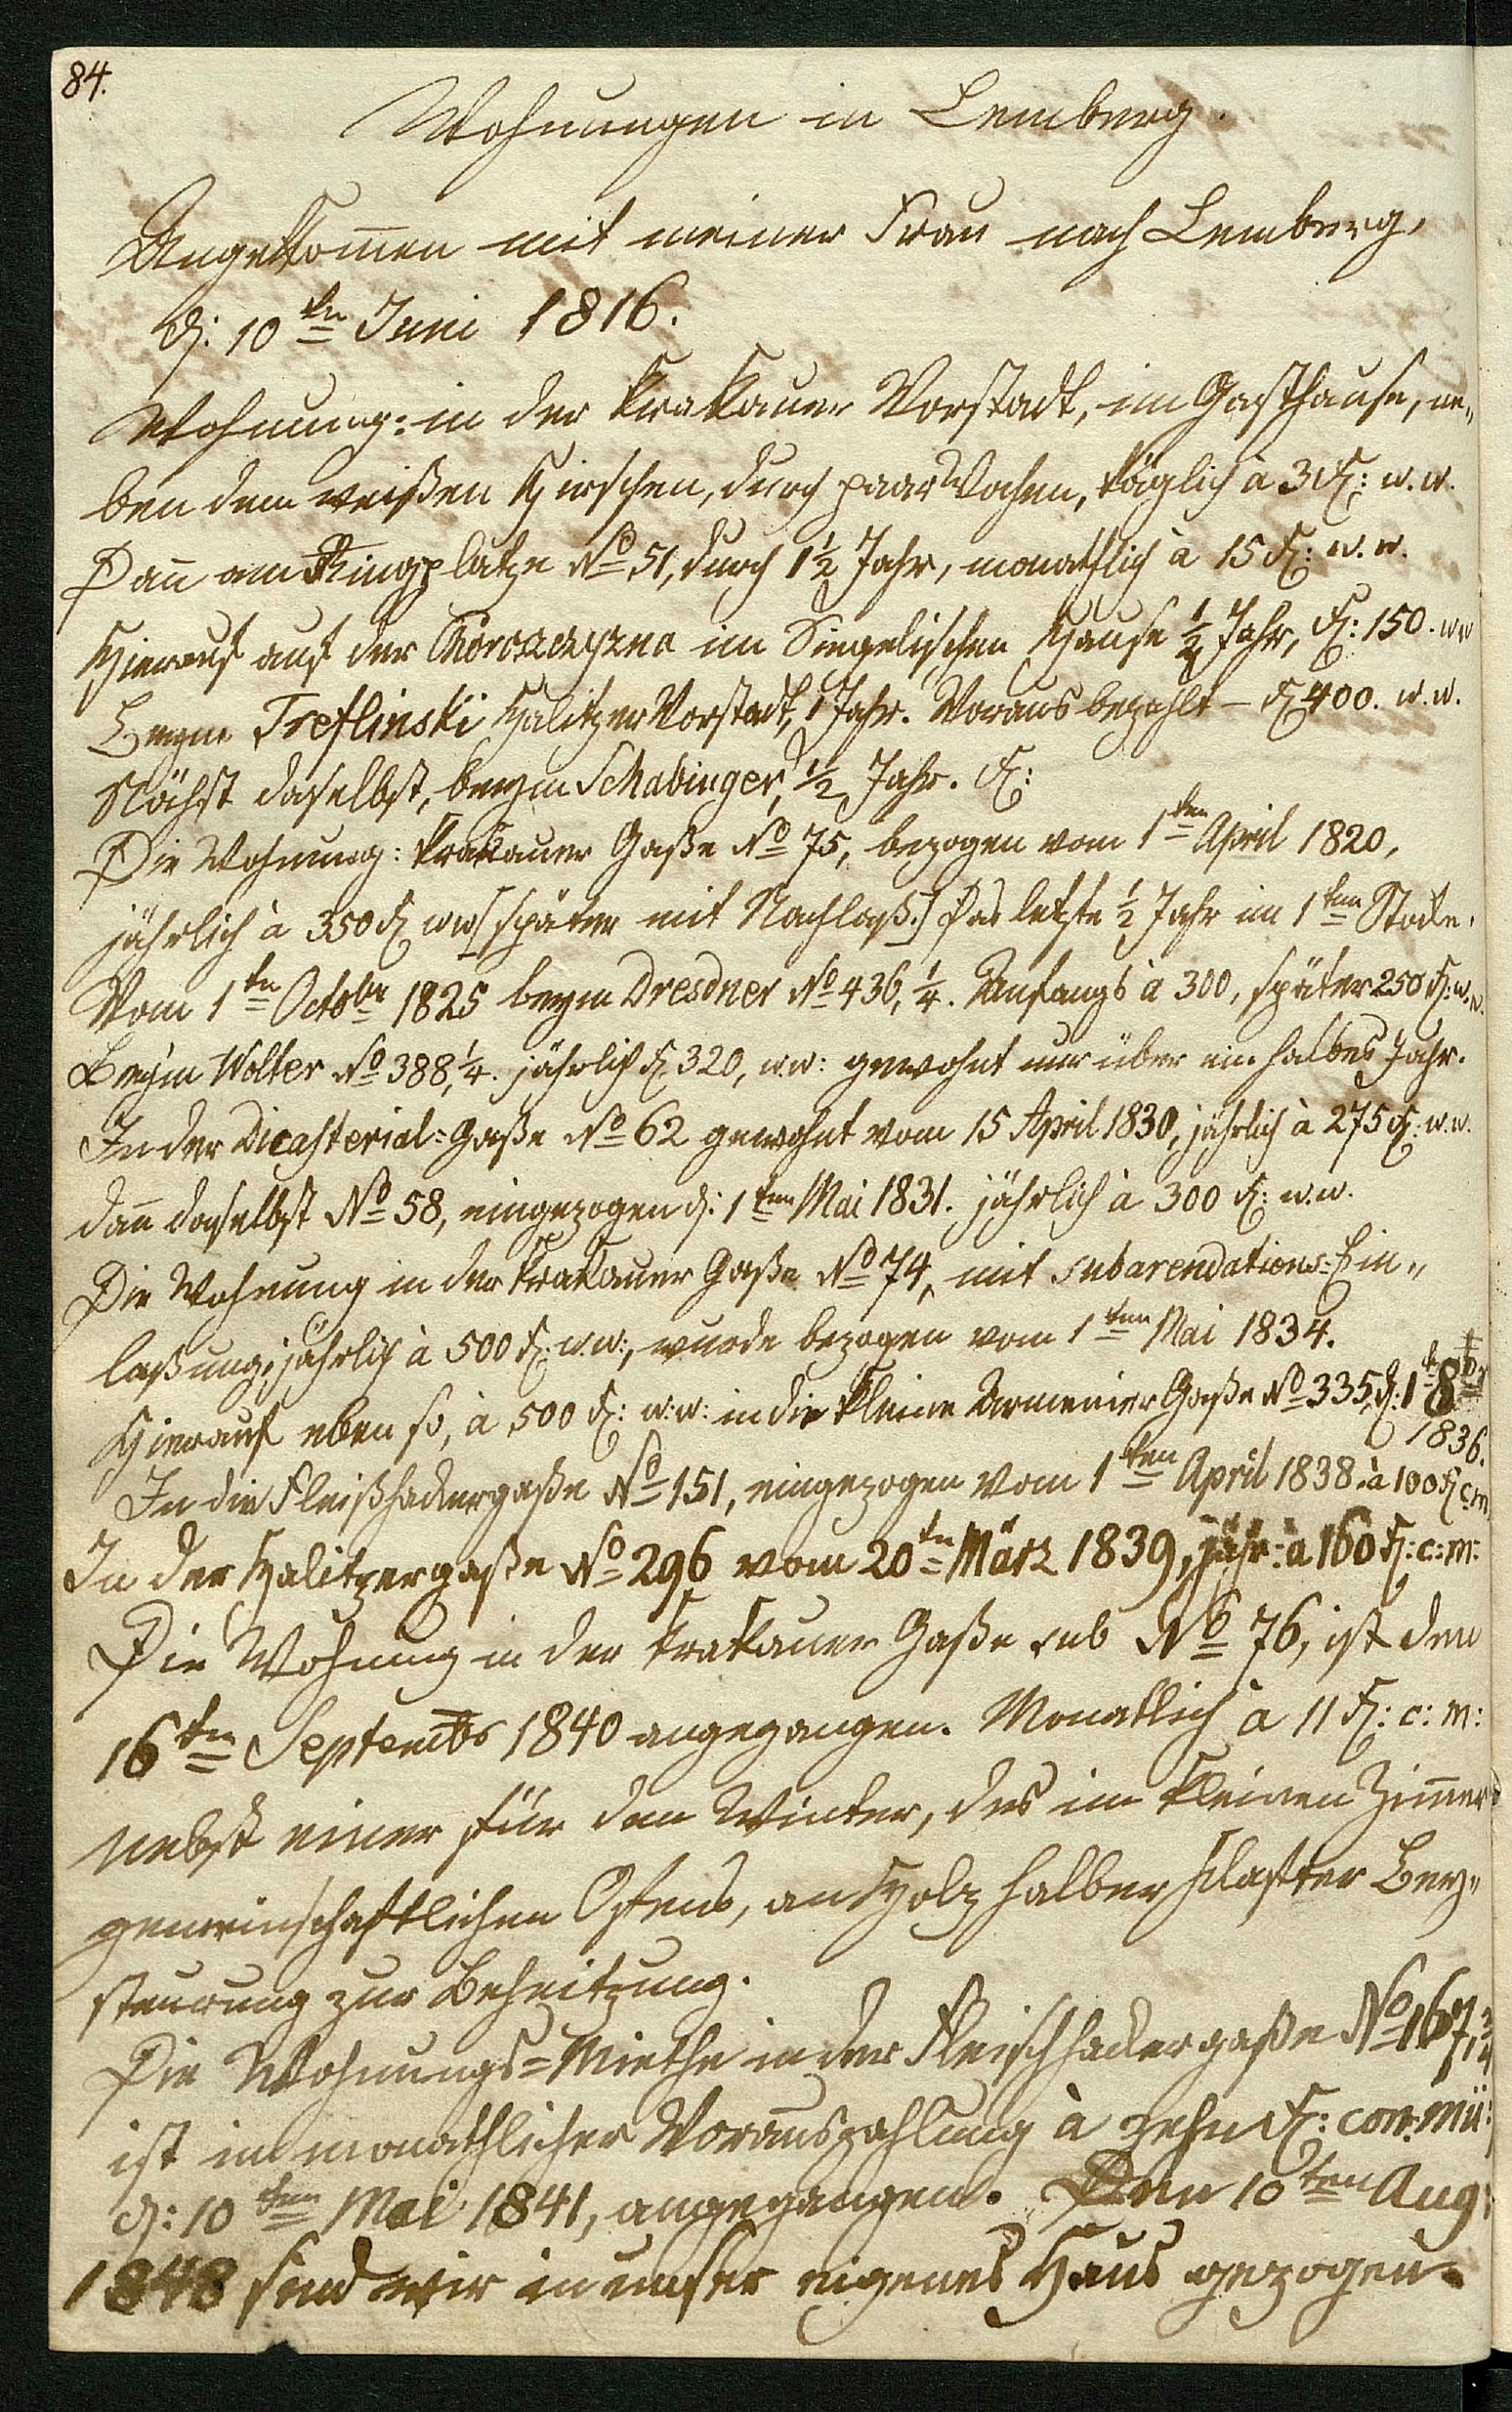 84.
Wohnungen in Lemberg.
Angekom̄en mit meiner Frau nach Lemberg,
d: 10ten Juni 1816.
Wohnung: in der Krakauer Vorstadt, im Gasthause, ne„
ben dem weißen Hirschen, durch paar Wochen, täglich à 3 f: w. w.
Dan̄ am Ringplatze No 51, durch 1½ Jahr, monathlich à 15 f: w. w.
Hierauf auf der Chorosczyzna im Singelischen Hause ½ Jahr, f: 150. ww
Beym Treflinski Halitzer Vorstadt, 1 Jahr. Voraus bezahlt – f 400. w. w.
Nächst daselbst, beym Schabinger, ½ Jahr. f:
Die Wohnung: Krakauer Gaße No 75, bezogen vom 1ten April 1820,
jährlich à 350 f ww [später mit Nachlaß.] Das letzte ½ Jahr im 1ten Stocke.
Vom 1ten Octobr 1825 beym Dresdner No 436, ¼. Anfangs à 300, später 250 f: w. w.
Beym Wolter No 388, ¼. jährlich f 320, w.w: gewohnt nur über ein halbes Jahr.
In der Dicasterial=Gaße No 62 gewohnt vom 15 April 1830, jährlich à 275 f: w. w.
dan̄ daselbst No 58, eingezogen d: 1ten Mai 1831. jährlich à 300 f: w. w.
Die Wohnung in der Krakauer Gaße No 74, mit Subarendations=Ein„
laßung, jährlich à 500 f: w. w:, wurde bezogen vom 1ten Mai 1834.
Hierauf eben so, à 500 f: w: w: in die kleine Armenier Gaße No 335, d: 1t 8br
1836.
In die Fleißhackergaße No 151, eingezogen vom 1ten April 1838. à 100 f c. m.
In der Halitzergaße No 296 vom 20ten März 1839, jähr: à 160 f: c: m:
Die Wohnung in der Krakauer Gaße sub No 76, ist den
16ten Septembr 1840 angegangen. Monatlich à 11 f: c: m:
nebst einer für den Winter, des im kleinen Zim̄er
gemeinschaftlichen Ofens, an Holz halber Klafter Bey„
steurung zur Beheitzung.
Die Wohnungs=Miethe in der Fleischhackergaße No 167, ¾
ist in monathlicher Vorauszahlung à zehn f: con: mü:
d: 10ten Mai 1841, angegangen. Den 10ten Aug:
1848 sind wir in unser eigenes Haus gezogen.